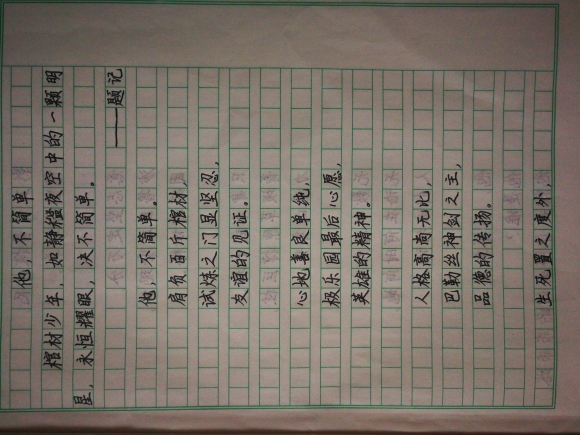 他，不简单
棺材少年，如静橙夜空中的一颗明
星，永恒耀眼，决不简单。
——题记
他，不简单。
肩负百斤棺材，
试炼之门显坚忍，
友谊的见证。
心地善良单纯，
极乐园最后心愿，
英雄的精神。
人格高尚无比，
巴勒丝神剑之主，
品德的传扬。
生死置之度外，